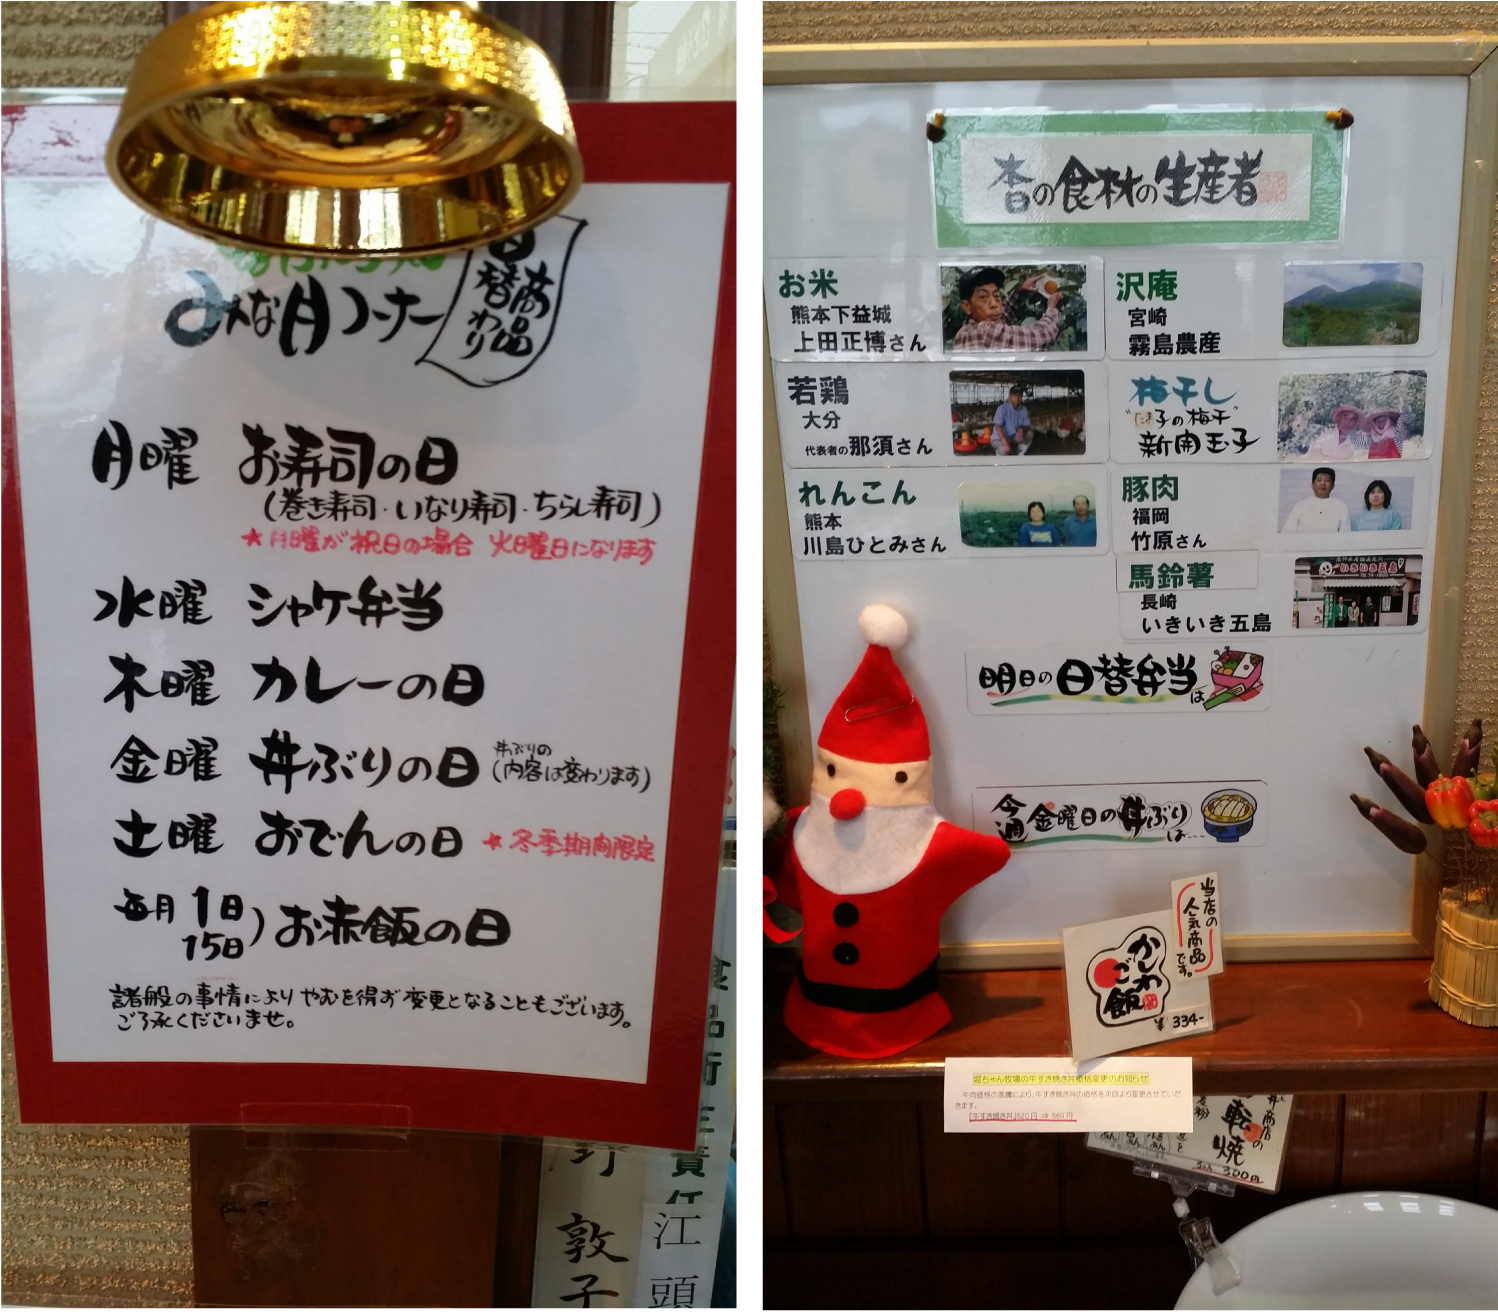 みな月コーナー
日替わり
商品
月曜 お寿司の日
(巻き寿司・いなり寿司・ちらし寿司)
★月曜が祝日の場合 火曜日になります
水曜 シャケ弁当
木曜 カレーの日
金曜 丼ぶりの日
丼ぶりの
(内容は変わります)
土曜 おでんの日 ★冬季期間限定
毎月 1日
15日) お赤飯の日
諸般の事情により やむを得ず変更となることもございます。
ご了承くださいませ。
責任
江頭
敦子
杏の食材の生産者
お米
熊本下益城
上田正博さん
沢庵
宮崎
霧島農産
若鶏
大分
代表者の那須さん
梅干し
新開玉子
れんこん
熊本
川島ひとみさん
豚肉
福岡
竹原さん
馬鈴薯
長崎
いきいき五島
いきいき五島
明日の日替弁当は
今週金曜日の丼ぶりは…
当店の
人気商品
です。
かしわ
ご飯
¥334-
堀ちゃん牧場の牛すき焼き丼価格変更のお知らせ
牛肉価格の高騰により、牛すき焼き丼の価格を次回より変更させていただ
きます。
「牛すき焼き丼」520円 ⇒ 560円
丼商店の
転焼
300円